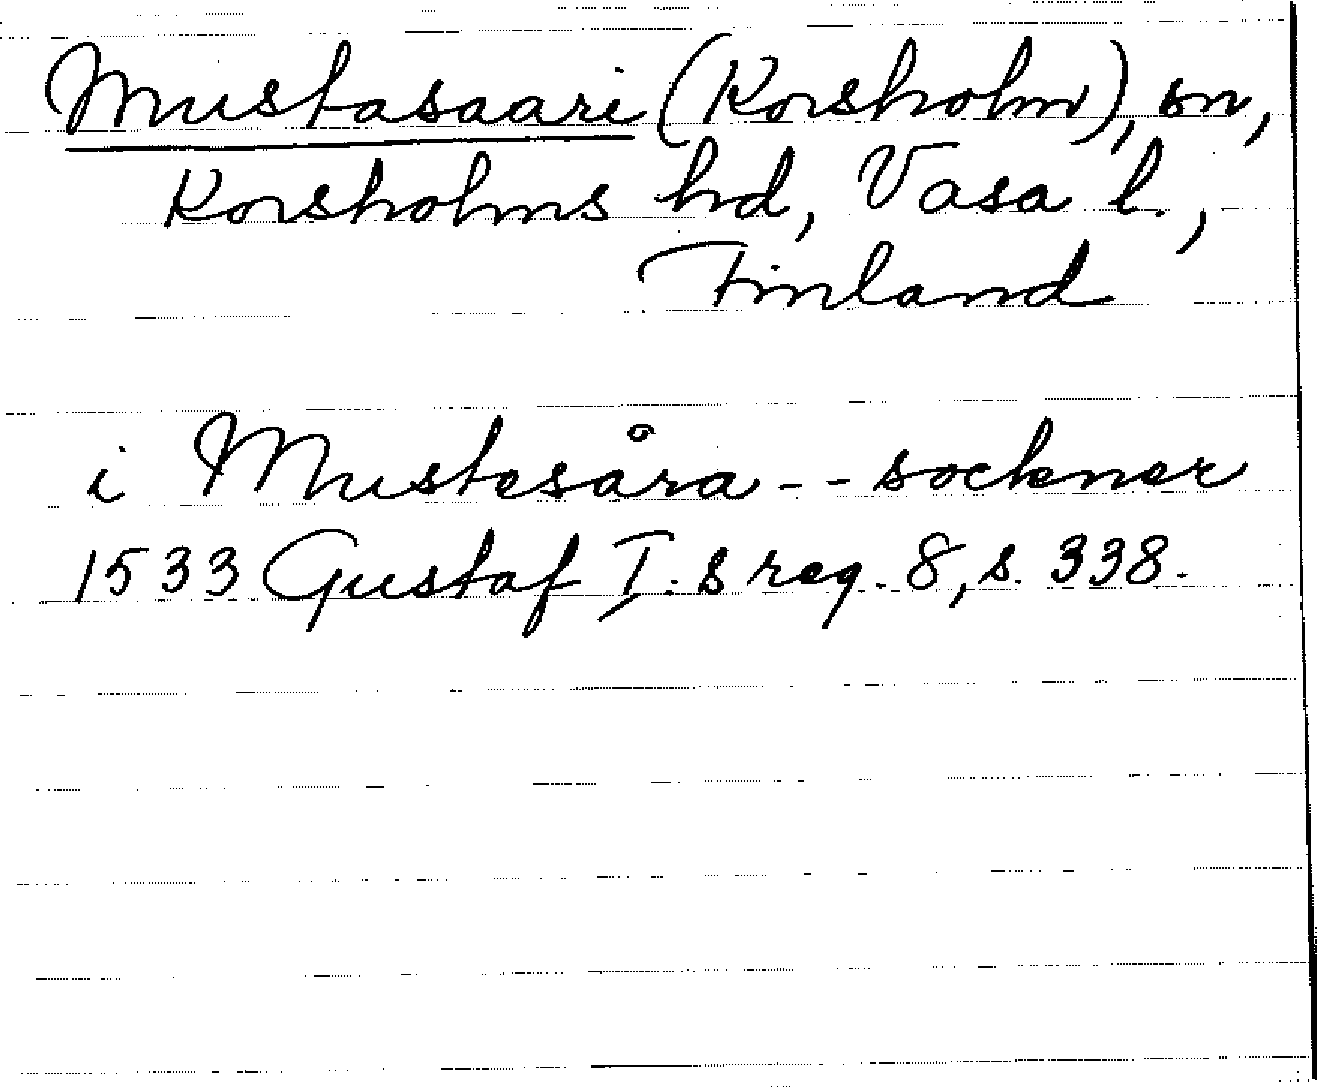 Mustasaari (Korsholm), sn,
Korsholms hd, Vasa l.,
Finland
i Mustesåra -- sockner
1533 Gustaf I.s reg. 8, s. 338.